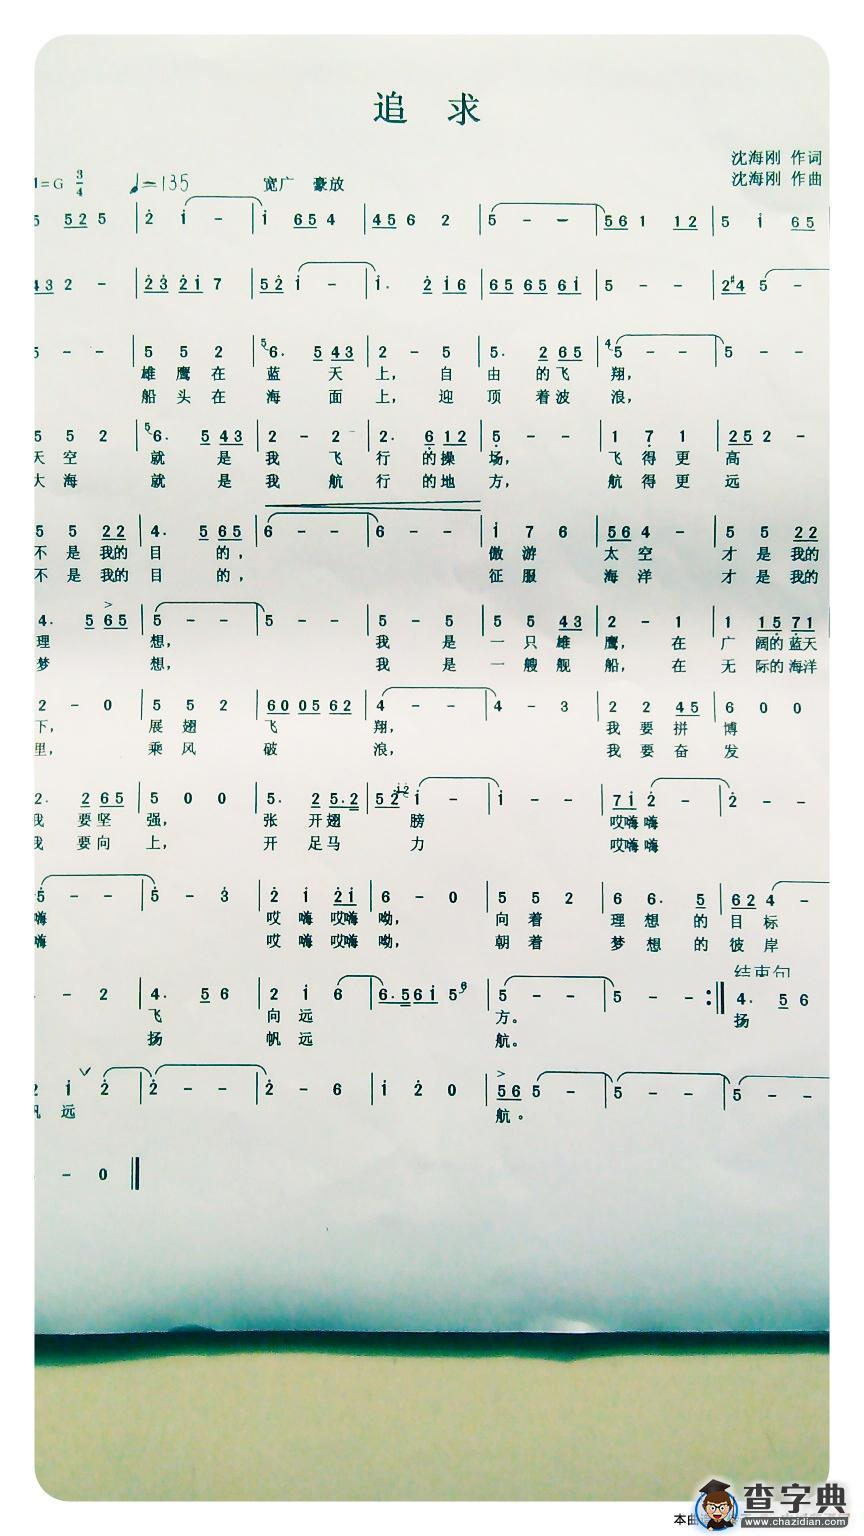 追 求
沈海刚 作词
1=G 3/4 ♩=135 宽广 豪放 沈海刚 作曲
5 525 5 | 2 i - | i 654 | 456 2 | 5 - - | 561 12 | 5 i 65
43 2 - | 23 21 7 | 52 i - | i. 2 i6 | 65 65 6i | 5 - - | 2#4 5 -
5 - - | 5 5 2 | 6. 5 43 | 2 - 5 | 5. 2 65 | 5 - - | 5 - -
雄鹰在 蓝 天 上, 自 由 的飞 翔,
船头在 海 面 上, 迎 顶 着波 浪,
5 5 2 | 6. 5 43 | 2 - 2 | 2. 6 12 | 5 - - | 1 7 1 | 252 -
天空 就 是 我 飞 行 的操 场, 飞得更 高
大海 就 是 我 航 行 的地 方, 航得更 远
5 5 22 | 4. 5 65 | 6 - - | 6 - - | i 7 6 | 564 - | 5 5 22
不是我的 目 的, 傲游 太空 才是我的
不是我的 目 的, 征服 海洋 才是我的
4. 5 65 | 5 - - | 5 - - | 5 - 5 | 5 5 43 | 2 - 1 | 1 15 71
理 想, 我 是 一只雄 鹰, 在 广 阔的蓝天
梦 想, 我 是 一艘舰 船, 在 无 际的海洋
2 - 0 | 5 5 2 | 60 05 62 | 4 - - | 4 - 3 | 2 2 45 | 6 0 0
下, 展翅 飞 翔, 我要拼 博
里, 乘风 破 浪, 我要奋 发
2. 2 65 | 5 0 0 | 5. 2 5.2 | 52 i - | i - - | 7i 2 - | 2 - -
我 要坚 强, 张 开翅 膀 哎嗨嗨
我 要向 上, 开 足马 力 哎嗨嗨
5 - - | 5 - 3 | 2 i 2i | 6 - 0 | 5 5 2 | 6 6. 5 | 62 4 -
嗨 哎嗨哎嗨 呦, 向着 理想 的 目标
嗨 哎嗨哎嗨 呦, 朝着 梦想 的 彼岸
结束句
- 2 | 4. 5 6 | 2 i 6 | 6.56i 5 | 5 - - | 5 - - :‖ 4. 5 6
飞 向远 方。 扬
扬 帆远 航。
2 i 2 | 2 - - | 2 - 6 | i 2 0 | 56 5 - | 5 - - | 5 - -
帆远 航。
- 0 ‖
查字典
www.chazidian.com